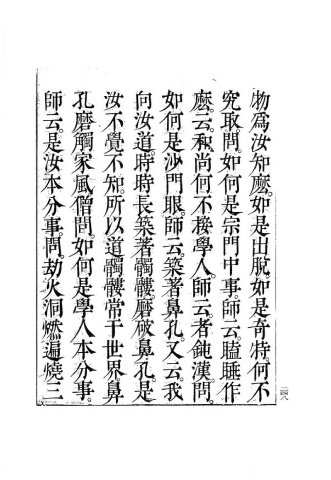 物爲汝知麽。如是出脫。如是奇特。何不
究取。問。如何是宗門中事。師云。瞌睡作
麽。云。和尚何不接學人。師云。者鈍漢。問。
如何是沙門眼。師云。築著鼻孔。又云。我
向汝道。時時長築著髑髏。磨破鼻孔。是
汝不覺不知。所以道髑髏常干世界。鼻
孔磨觸家風。僧問。如何是學人本分事。
師云。是汝本分事。問。劫火洞燃。遍燒三
二四八